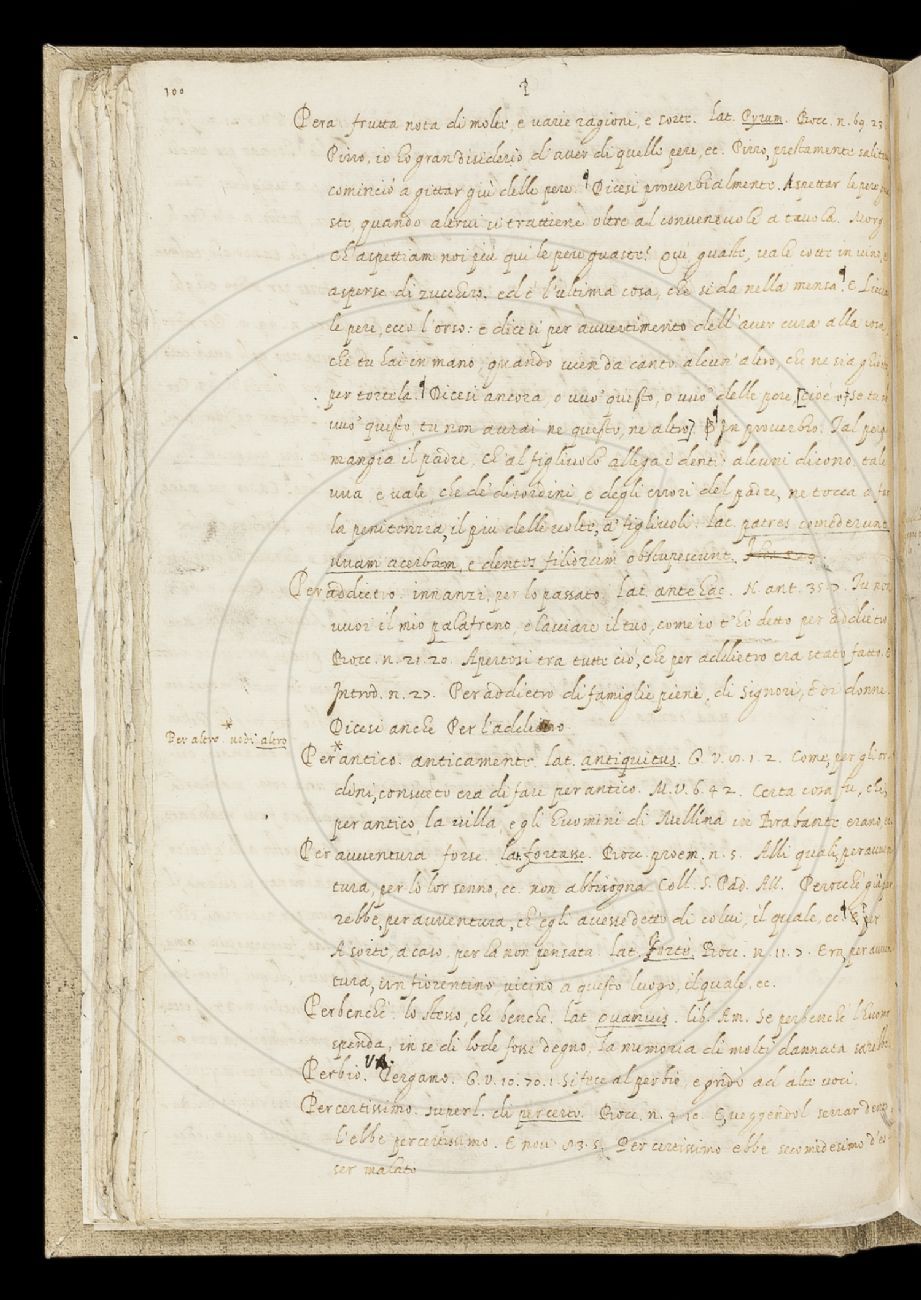 100
P
Pera frutta nota di molte, e varie ragioni, e sorte. Lat. Pyrum. Bocc. n. 69. 23.
Pirro. io ho gran disiderio d'aver di quelle pere, ec. Pirro, prestamente salito
cominciò a gittar giù delle pere. Dicesi proverbialmente. Aspettar le pere
ste, quando altrui si trattiene oltre al convenevole a tavola. Morg.
Ch'aspettiam noi più qui le pere guaste? Qui, guaste, vale cotte in vino, e
asperse di zucchero. ed è l'ultima cosa, che si da nella mensa. E
le pere, ecco l'orso: e dicesi per avvertimento dell'aver cura alla cosa,
che tu hai in mano, quando vien da canto alcun'altro, che ne sia ghiotto
per tortela. Dicesi ancora, o vuo' questo, o vuo' delle pere, [cioè o, se tu non
vuo' questo tu non avrai ne questo, ne altro]. In proverbio. Tal pera
mangia il padre, ch'al figliuolo allega i denti: alcuni dicono, tale
uva, e vale che de' disordini, e degli errori del padre, ne tocca a far
la penitenzia, il più delle volte, a' figliuoli. lat. patres comederunt
uvam acerbam, e dentes filiorum obstupescunt.
Per addietro. innanzi. per lo passato. Lat. antehac. N. ant. 35. 7. Tu non
vuoi il mio palafreno, e lasciare il tuo, come io t'ho detto per addietro
Bocc. n. 21. 20. Apertosi tra tutte ciò, che per addietro era stato fatto. E
Introd. n. 27. Per addietro di famiglie piene, di signori, e di donne.
Dicesi anche Per l'addietro.
Per altro. vedi altro
Per antico. anticamente. lat. antiquitus. G. V. 1. 2. Come, per gli or-
dini, consueto era di fare per antico. M. V. 6. 42. Certa cosa fu, che,
per antico, la villa, e gli huomini di Mellina in Brabante, erano, ec.
Per avventura, forse. lat. fortasse. Bocc. proem. n. 5. Alli quali, per avven
tura, per lo lor senno, ec. non abbisogna Coll. S. Pad. All. Perocchè già par
rebbe, per avventura, ch'egli avesse detto di colui, il quale, ec. E per
A sorte, a caso, per la non pensata. lat. forte. Bocc. n. 11. 7. Era, per avven
tura, un fiorentino vicino a questo luogo, il quale, ec.
Perbenchè. lo stesso, che benchè. lat. quamvis. lib. Am. Se perbenchè l'huomo
spenda, in se di lode fosse degno, la memoria di molti dannata sarebbe.
Perbio. V. Pergamo. G. V. 10. 70. 1. Si fece al perbio, e gridò ad alte voci.
Percertissimo. superl. di percerto. Bocc. n. 4. 10. E, veggendol serrar dentro
l'ebbe percertissimo. E nov. 83. 5. Per certissimo ebbe seco medesimo d'es-
ser malato